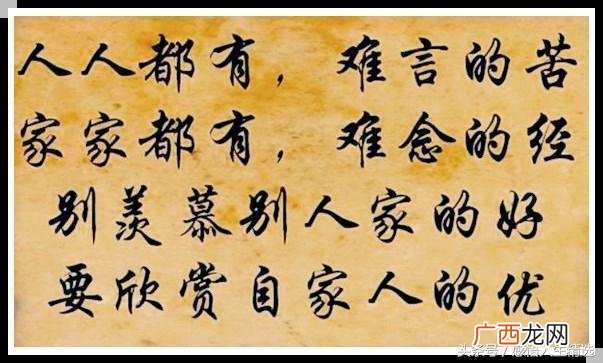 人人都有，难言的苦
家家都有，难念的经
别羡慕别人家的好
要欣赏自家人的优
广西龙网
头条号 / 感悟人生精选